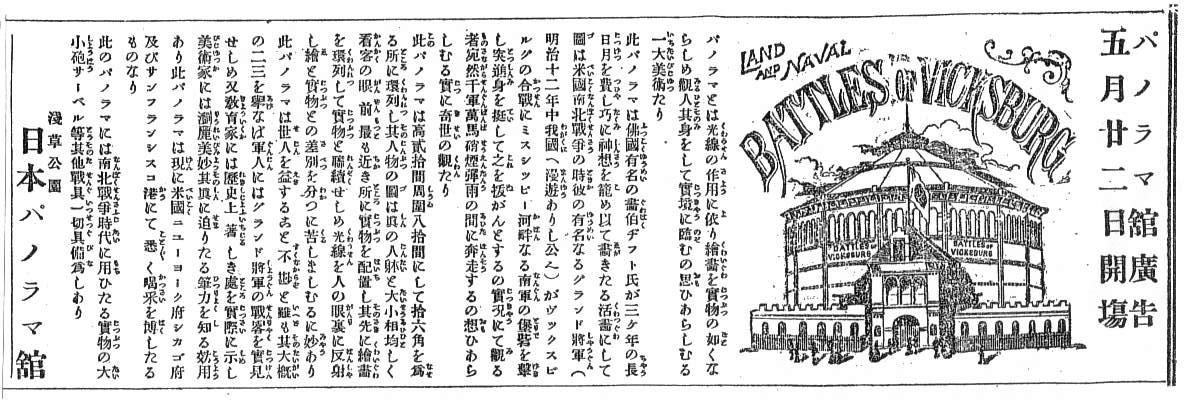 パノラマ舘廣告
五月廿二日開塲
LAND
AND NAVAL
BATTLES OF VICKSBURG
BATTLES OF
VICKSBURG
BATTLES OF
VICKSBURG
パノラマとは光線の作用に依り繪畵を實物の如くな
らしめ觀人其身をして實境に臨むの思ひあらしむる
一大美術たり
此パノラマは佛國有名の畵伯ヂフト氏が三ケ年の長
日月を費し巧に神想を籠め以て畵きたる活畵にして
圖は米國南北戰爭の時彼の有名なるグランド將軍(
明治十二年中我國へ漫遊ありし公之)がヴックスビ
ルグの合戰にミスシッピー河畔なる南軍の堡砦を擊
し突過身を挺して之を援がんとするの實況にて觀る
者宛然千軍萬馬硝煙彈雨の間に奔走するの想ひあら
しむる實に奇世の觀たり
此パノラマは高貳拾間周圍八拾間にして拾六角を爲
る所に環列し其人物の圖は眞の人躰と大小相均しく
看客の眼前最も近き所に實物を配置し其先に繪畵
を環列して實物と聯續せしめ光線を人の眼裏に反射
し繪と實物との差別を分つに苦しましむるに妙あり
此パノラマは世人を益するあと不尠と雖も其大概
の二三を擧なば軍人にはグランド將軍の戰畧を實見
せしめ又敎育家には歷史上著しき處を實際に示し
美術家には瀏麗美妙其眞に迫りたる筆力を知る妨用
あり此パノラマは現に米國ニユーヨーク府シカゴ府
及びサンフランシスコ港にて悉く喝采を博したる
ものなり
此のパノラマには南北戰爭時代に用ひたる實物の大
小砲サーベル等其他戰具一切具備爲しあり
淺草公園
日本パノラマ舘